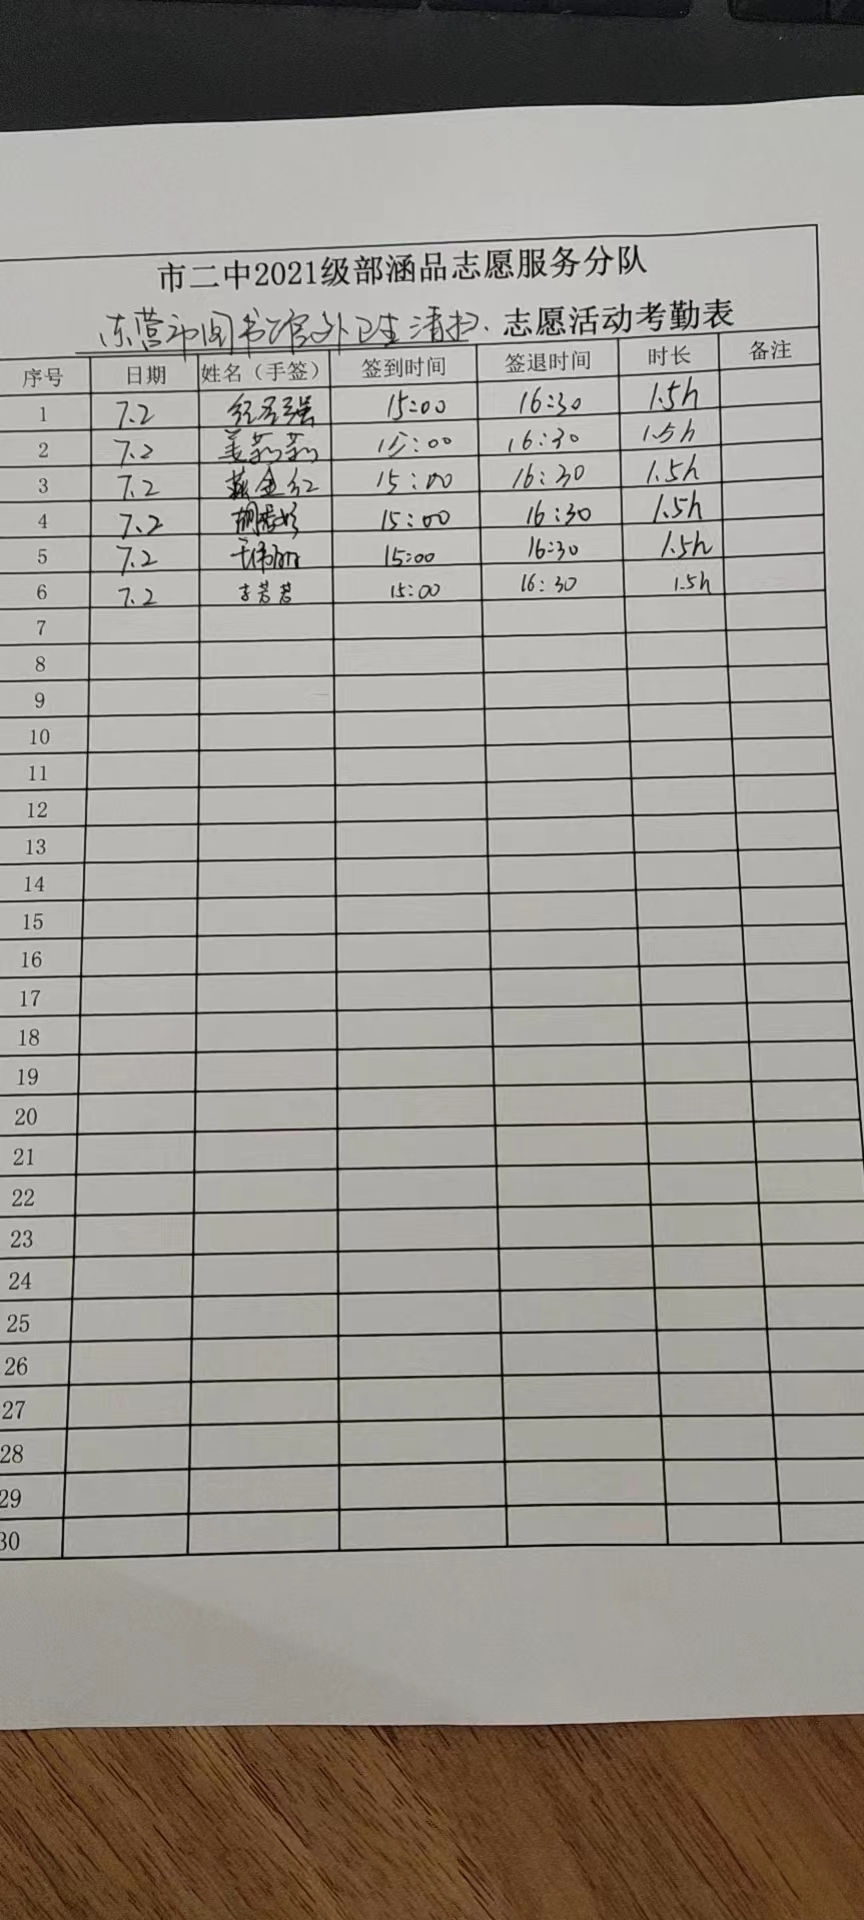 市二中2021级部涵品志愿服务分队
东营市图书馆外卫生清扫.志愿活动考勤表
序号 日期 姓名（手签） 签到时间 签退时间 时长 备注
1 7.2 15:00 16:30 1.5h
2 7.2 姜莉莉 15:00 16:30 1.5h
3 7.2 15:00 16:30 1.5h
4 7.2 15:00 16:30 1.5h
5 7.2 15:00 16:30 1.5h
6 7.2 李芳芳 15:00 16:30 1.5h
7
8
9
10
11
12
13
14
15
16
17
18
19
20
21
22
23
24
25
26
27
28
29
30